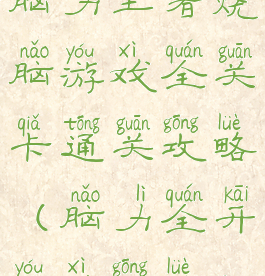 脑力王者烧
nǎo yóu xì quán guān
脑游戏全关
qiǎ tōng guān gōng lüè
卡通关攻略
nǎo lì quán kāi
(脑力全开
yóu xì gōng lüè